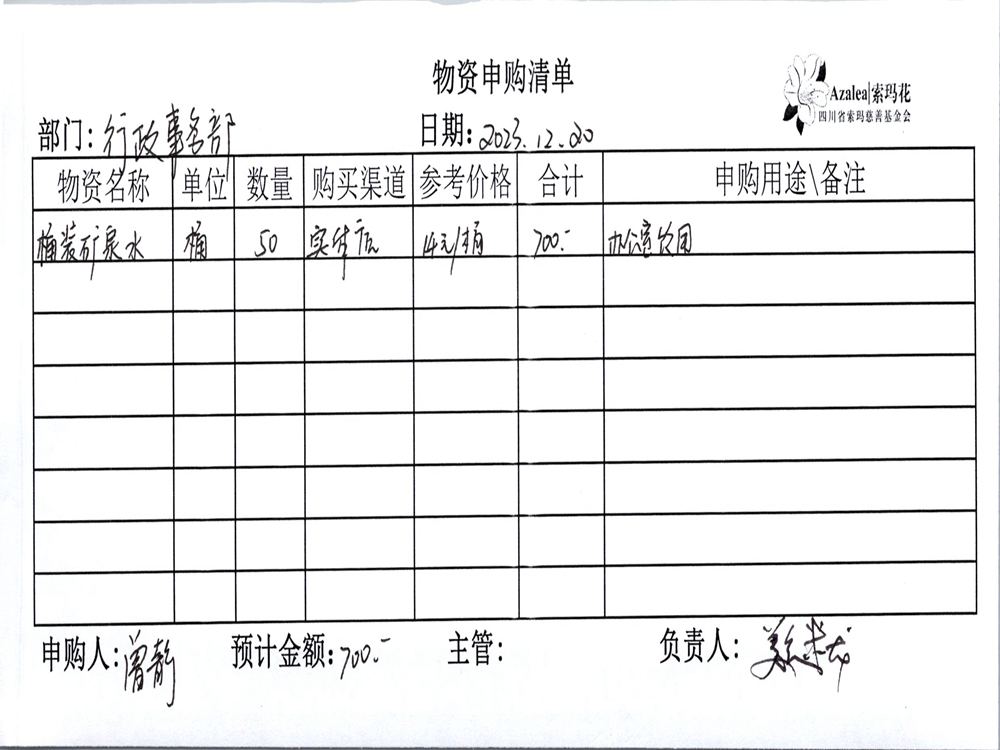 物资申购清单
Azalea|索玛花
四川省索玛慈善基金会
部门: 行政事务部 日期: 2023.12.20
物资名称 单位 数量 购买渠道 参考价格 合计 申购用途\备注
桶装矿泉水 桶 50 实体店 14元/桶 700.- 办公室饮用
申购人: 曾静 预计金额: 700.- 主管: 负责人: